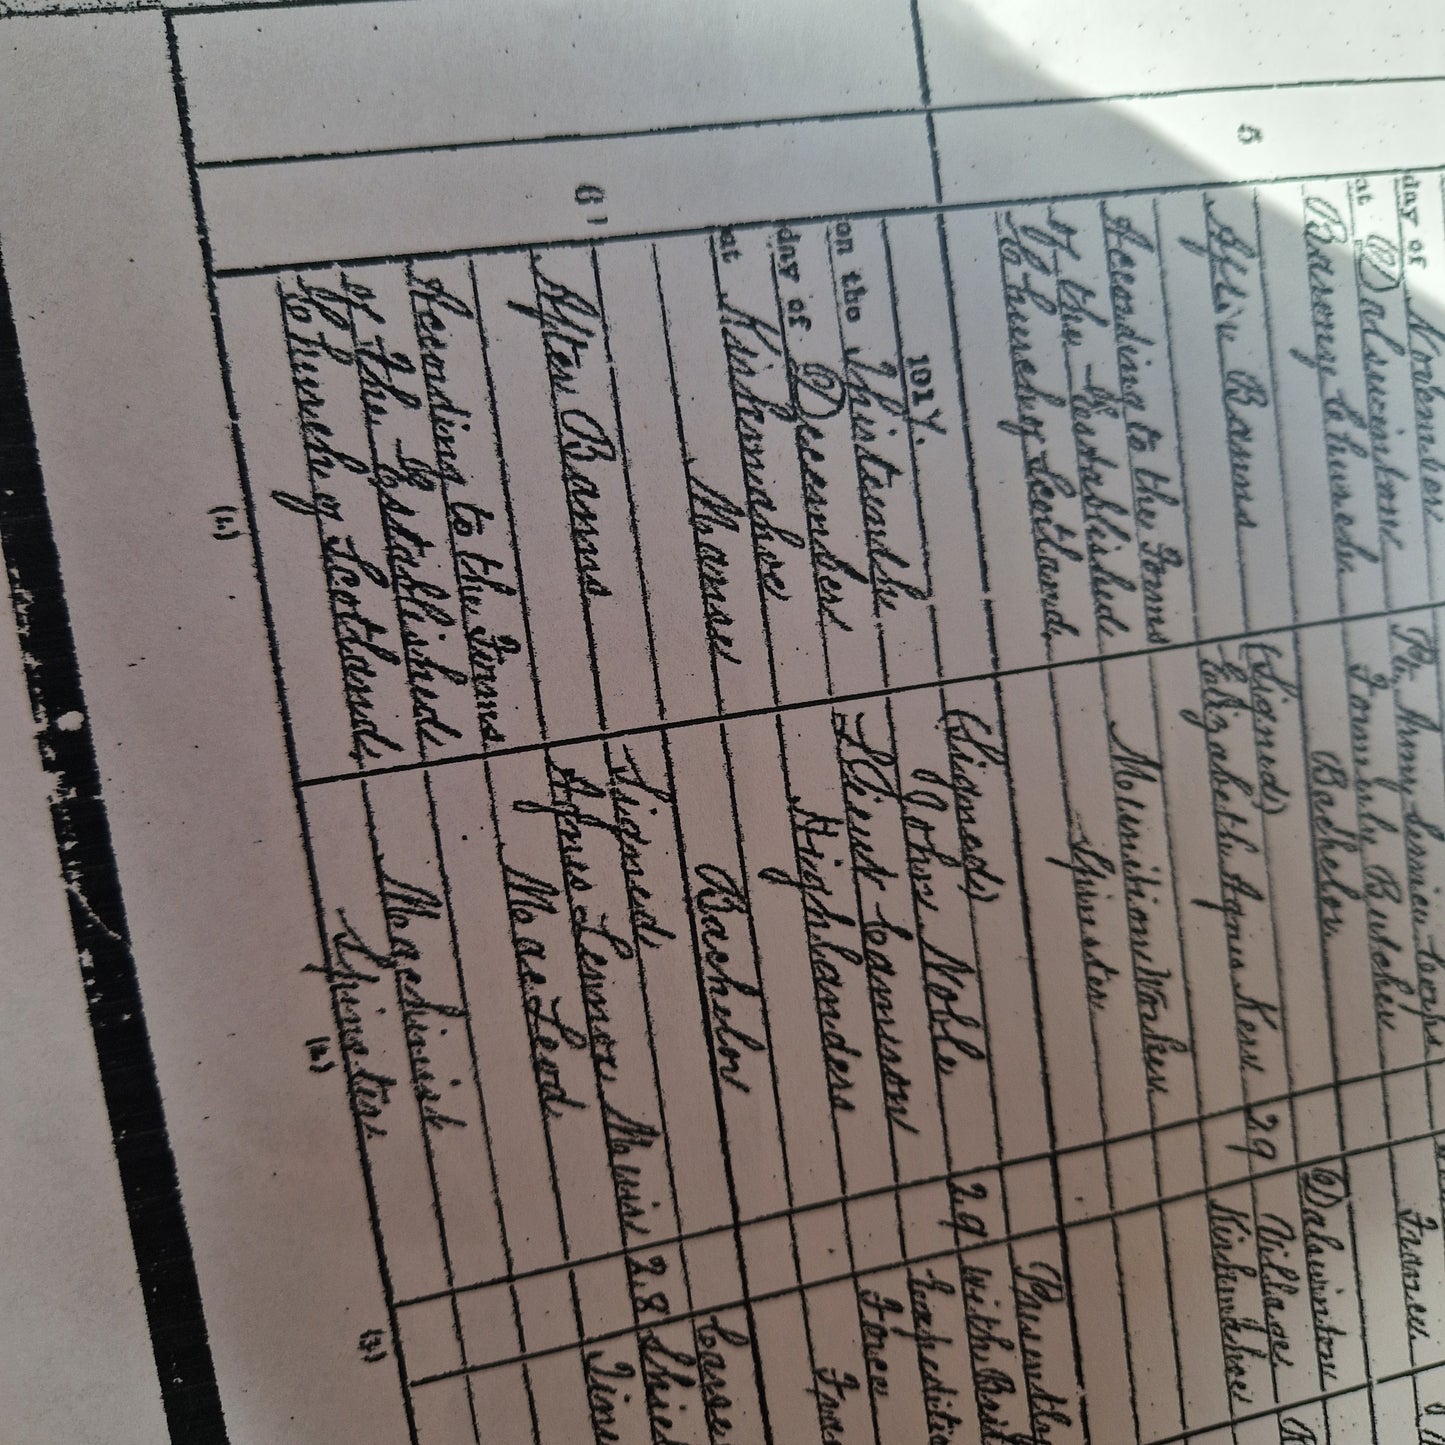 5
day of November
at Dalswinton
Barony Church
After Banns
According to the Forms
of the Established
Church of Scotland
Army Service Corps
Formerly Butcher
Bachelor
(Signed)
Elizabeth Agnes Kerr
Munition Worker
Spinster
29
France
Dalswinton
Village
Kirkmahoe
6
1917.
on the Thirteenth
day of December
at Kirkmahoe
Manse
After Banns
According to the Forms
of the Established
Church of Scotland
(Signed)
John Noble
Cameron
Highlanders
Bachelor
Signed
Agnes Lennox Muir
MacLeod
Machinist
Spinster
29
28
Presently
with Brit
Expeditio
Force
Fran
Carse
Shiel
Tin
(1.)
(2.)
(3.)